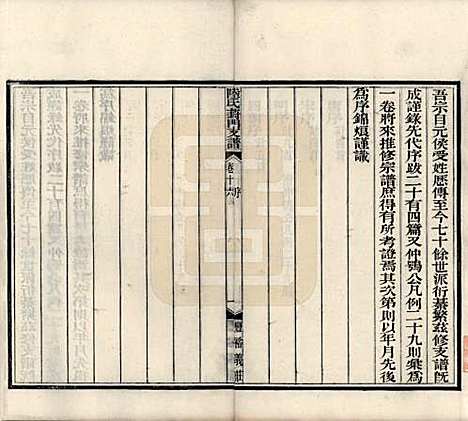 吾宗自元侯受姓歷傳至今七十餘世派衍綦繁茲修支譜旣
成謹錄先代序跋二十有四篇又仲鴞公凡例二十九則彙為
一卷將來推修宗譜庶得有所考證焉其次第則以年月先後
為序錦烺謹識
陸氏葑門支譜
卷十六
序
一
豐裕義莊